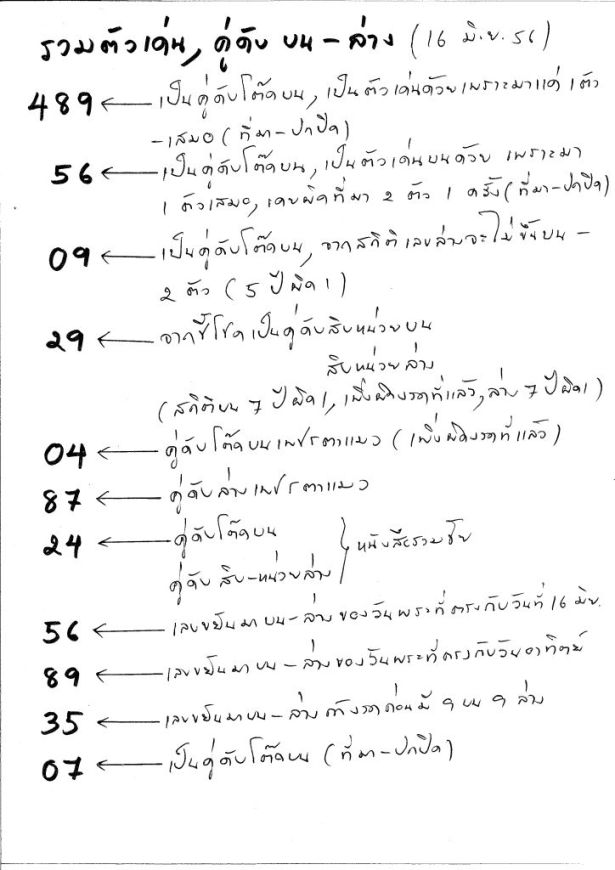 รวมตัวเด่น, คู่ดับ บน - ล่าง (16 มิ.ย. 56)
489 ← เป็นคู่ดับโต๊ดบน, เป็นตัวเด่นด้วยเพราะมาแค่ 1 ตัว
- เสมอ (ที่มา - ปกปิด)
56 ← เป็นคู่ดับโต๊ดบน, เป็นตัวเด่นบนด้วย เพราะมา
1 ตัวเสมอ, เคยผิดที่มา 2 ตัว 1 ครั้ง (ที่มา - ปกปิด)
09 ← เป็นคู่ดับโต๊ดบน, จากสถิติ เลขล่างจะไม่ขึ้นบน -
2 ตัว (5 ปี ผิด 1)
29 ← จากชี้โชค เป็นคู่ดับสิบหน่วยบน
สิบหน่วยล่าง
(สถิติบน 7 ปี ผิด 1, เพิ่งผิดงวดที่แล้ว, ล่าง 7 ปี ผิด 1)
04 ← คู่ดับโต๊ดบนเพชรตาแมว (เพิ่งผิดงวดที่แล้ว)
87 ← คู่ดับล่างเพชรตาแมว
24 ← คู่ดับโต๊ดบน
คู่ดับ สิบ - หน่วยล่าง } หนังสือรวมชัย
56 ← เลขขยันมา บน - ล่าง ของวันพระที่ตรงกับวันที่ 16 มิย.
89 ← เลขขยันมา บน - ล่าง ของวันพระที่ตรงกับวันอาทิตย์
35 ← เลขขยันมาบน - ล่าง ถ้างวดก่อนมี 9 บน 9 ล่าง
07 ← เป็นคู่ดับโต๊ดบน (ที่มา - ปกปิด)